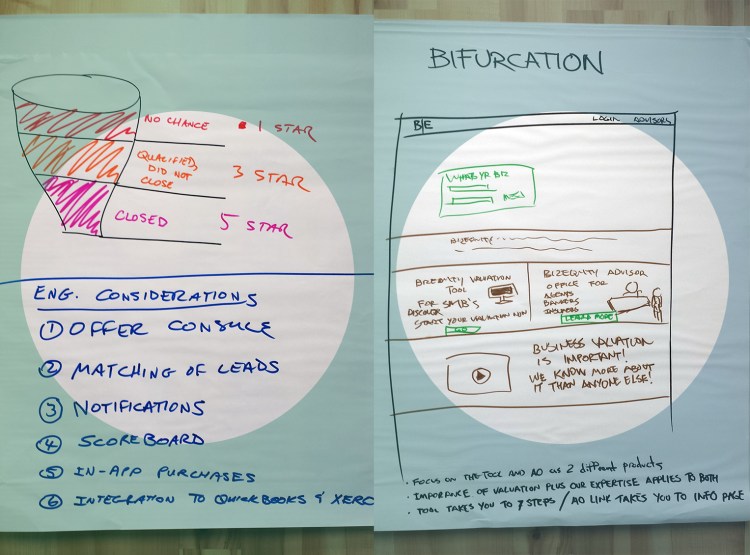 NO CHANCE 1 STAR
QUALIFIED, DID NOT CLOSE 3 STAR
CLOSED 5 STAR
ENG. CONSIDERATIONS
① OFFER CONSULE
② MATCHING OF LEADS
③ NOTIFICATIONS
④ SCOREBOARD
⑤ IN-APP PURCHASES
⑥ INTEGRATION TO QUICKBOOKS & XERO
BIFURCATION
B|E LOGIN ADVISORS
WHATS YR BIZ
BIZEQUITY
BIZEQUITY VALUATION
TOOL
FOR SMB'S
DISCOVER
START YOUR VALUATION NOW
GO
BIZEQUITY ADVISOR
OFFICE FOR
AGENTS
BANKERS
INSURERS
LEARN MORE
BUSINESS VALUATION
IS IMPORTANT!
WE KNOW MORE ABOUT
IT THAN ANYONE ELSE!
· FOCUS ON THE TOOL AND AO as 2 different products
· IMPORANCE OF VALUATION PLUS OUR EXPERTISE APPLIES TO BOTH
· TOOL TAKES YOU TO 7 STEPS / AO LINK TAKES YOU TO INFO PAGE